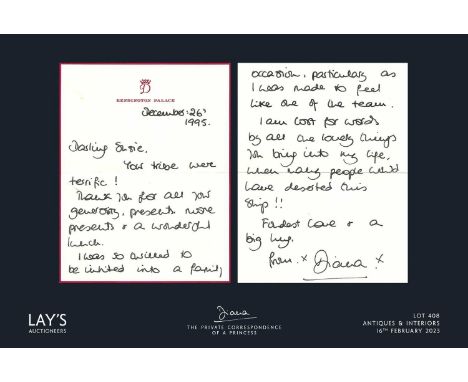 KENSINGTON PALACE
December 26th
1995.
Darling Susie,
Your tribe were
terrific!
Thank you for all your
generosity, presents, more
presents & a wonderful
lunch.
I was so thrilled to
be invited into a family
occasion, particularly as
I was made to feel
like one of the team.
I am lost for words
by all the lovely things
you bring into my life,
when many people would
have deserted this
ship!!
Fondest love & a
big hug,
from x Diana x
LAY'S
AUCTIONEERS
Diana
THE PRIVATE CORRESPONDENCE
OF A PRINCESS
LOT 408
ANTIQUES & INTERIORS
16TH FEBRUARY 2023